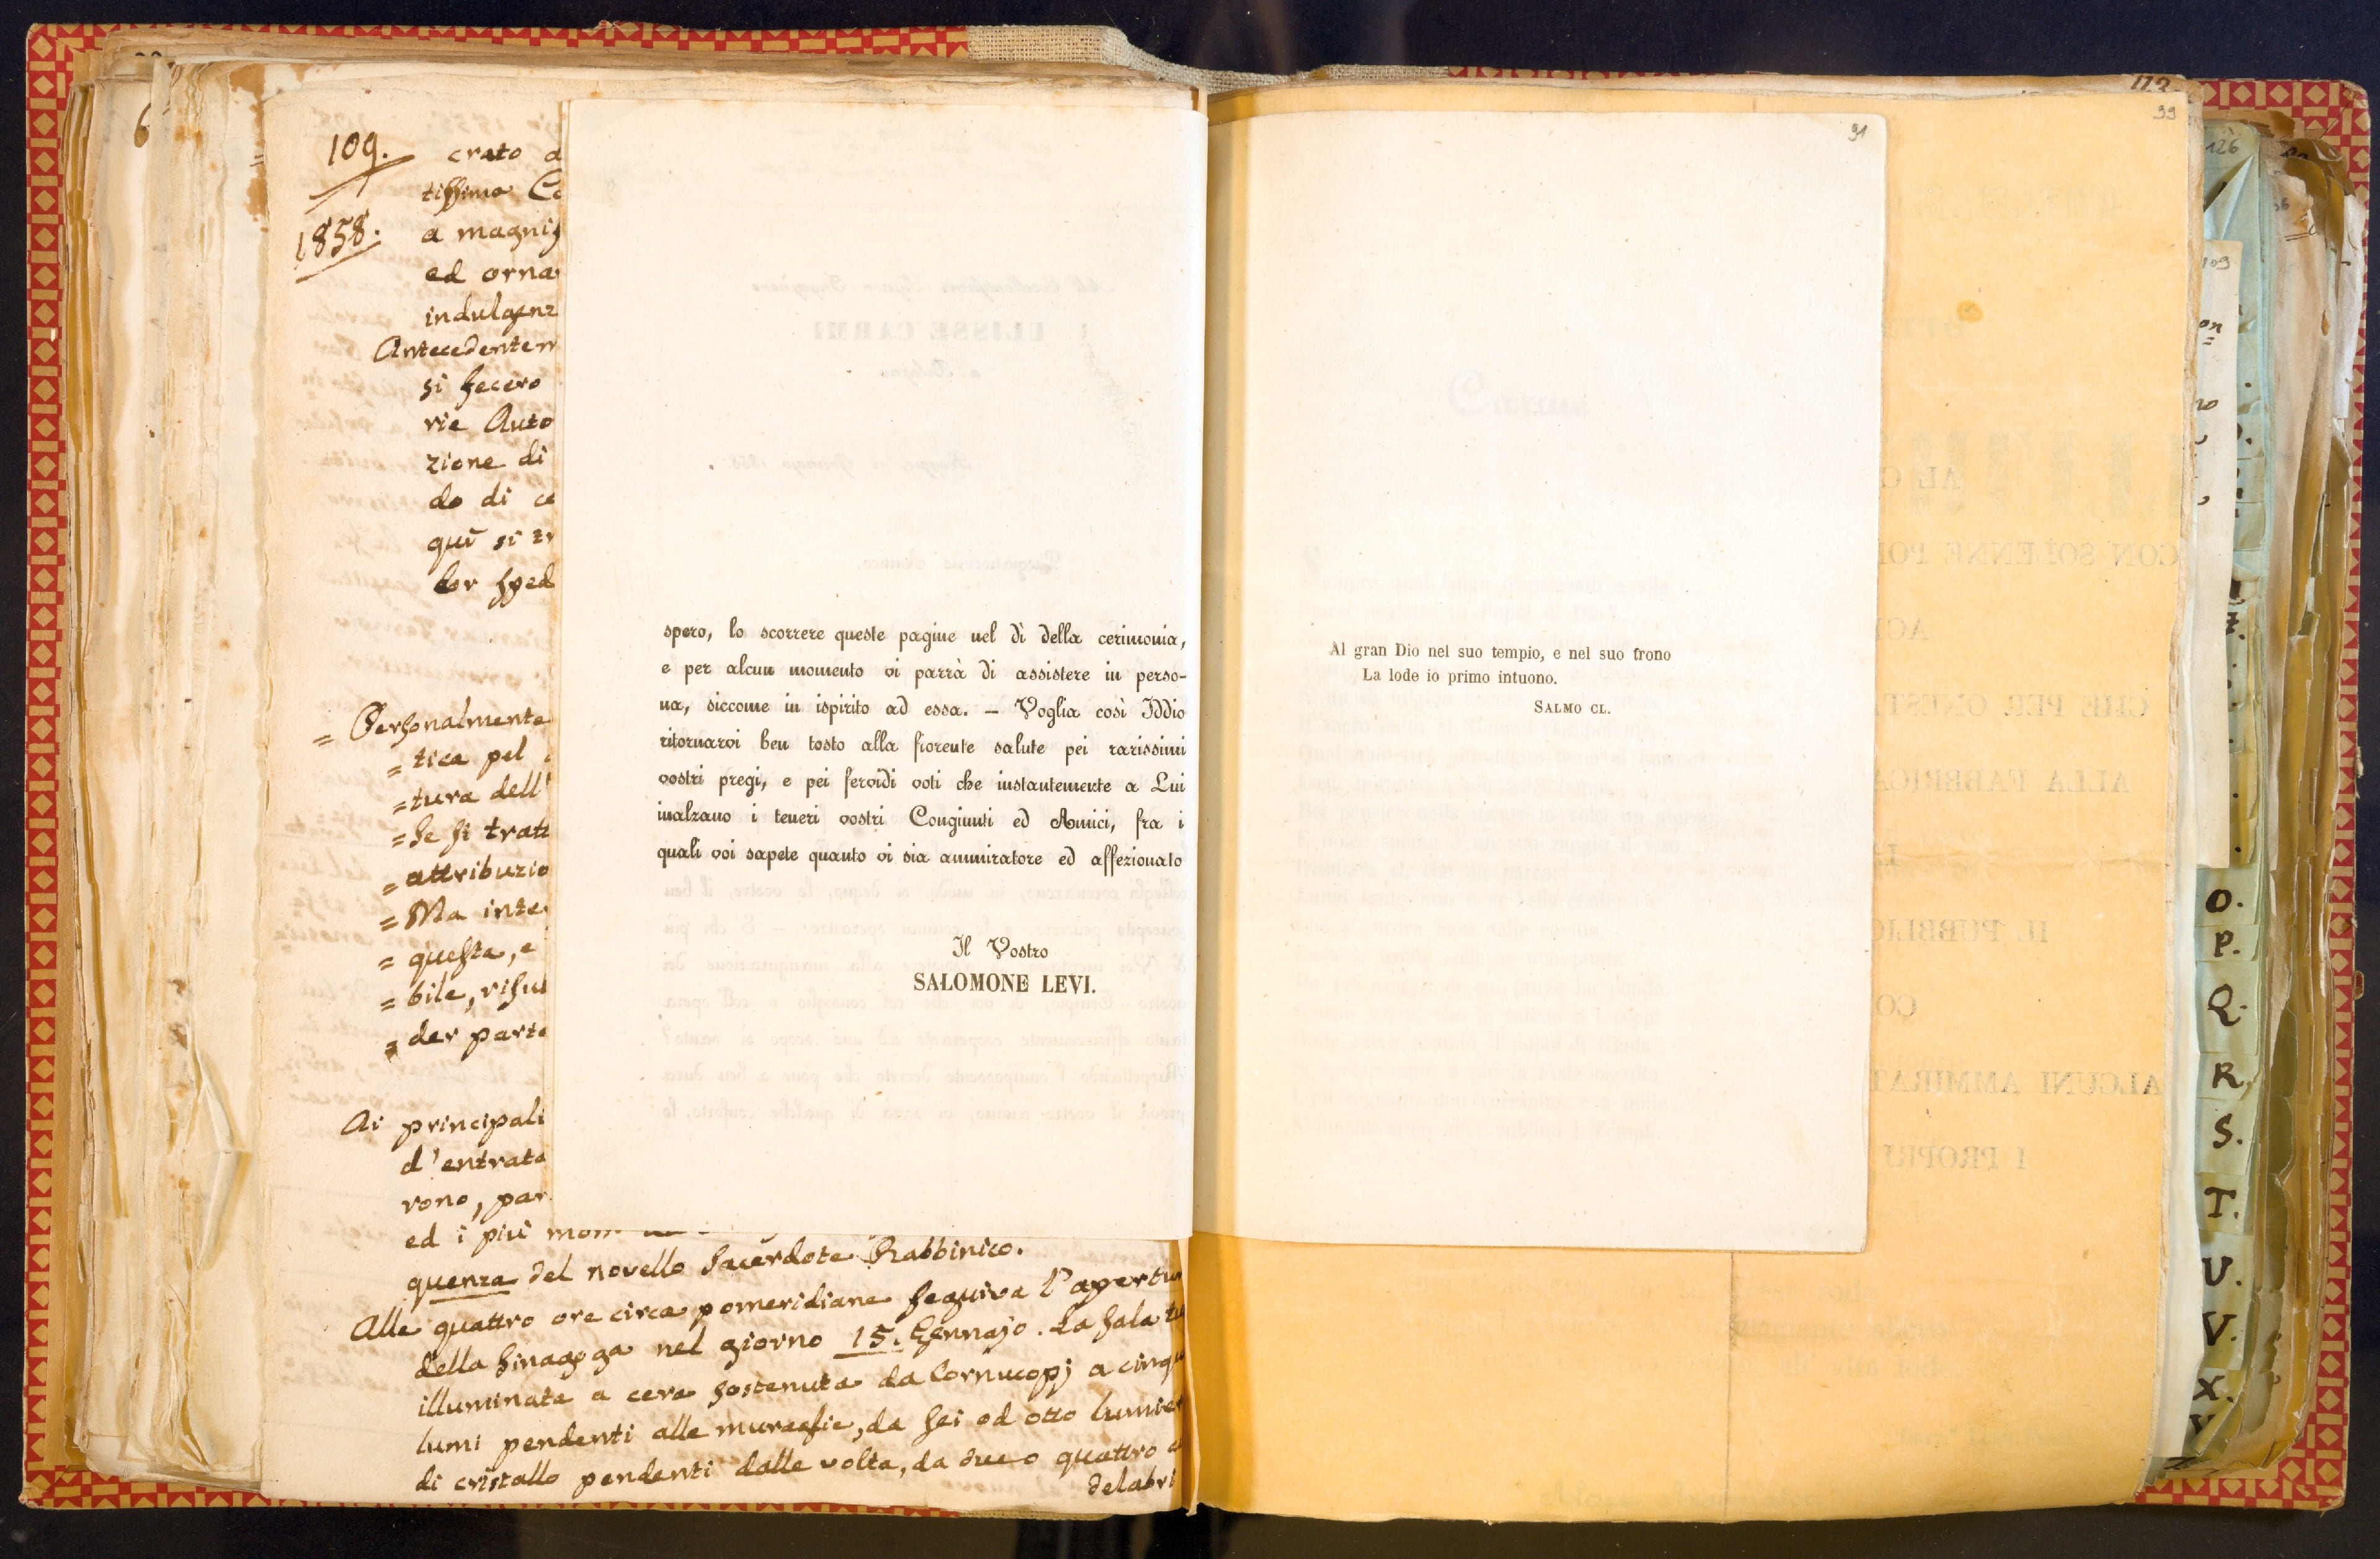 109.
1858.
crato
a
ed orna
Antecedentem
si fecero
rie Auto
zione di
do di ce
quì si
= Personalmente
= tica pel
= tura dell'
= se si tratt
= attribuzio
= Ma inte
= questa, e
= bile, risul
= der parte
Ai principali
d'entrata
rono, par
ed i più
quenza del novello Sacerdote Rabbinico.
Alle quattro ore circa pomeridiane seguiva l'apertur
della Sinagoga nel giorno 15. Gennajo. La Sala
illuminata a cera sostenuta da Cornucopj a cinqu
lumi pendenti alle muraglie, da sei od otto lumie
di cristallo pendenti dalle volta, da due o quattro
delabri
spero, lo scorrere queste pagine nel dì della cerimonia,
e per alcun momento vi parrà di assistere in perso-
na, siccome in ispirito ad essa. — Voglia così Iddio
ritornarvi ben tosto alla fiorente salute pei rarissimi
vostri pregi, e pei fervidi voti che instantemente a Lui
inalzano i teneri vostri Congiunti ed Amici, fra i
quali voi sapete quanto vi sia ammiratore ed affezionato
Il Vostro
SALOMONE LEVI.
91
Al gran Dio nel suo tempio, e nel suo trono
La lode io primo intuono.
SALMO CL.
99
126
109
O.
P.
Q.
R.
S.
T.
U.
V.
X.